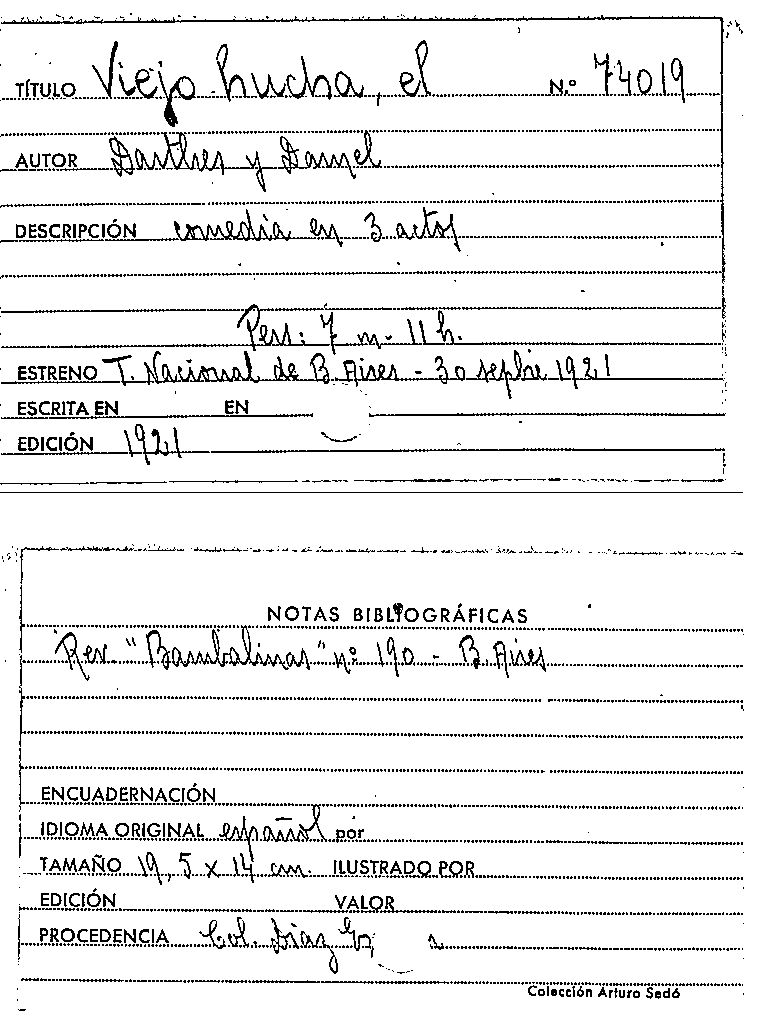 TÍTULO Viejo hucha, el N.º 74019
AUTOR Darthes y Damel
DESCRIPCIÓN comedia en 3 actos
Pers: 7 m. 11 h.
ESTRENO T. Nacional de B. Aires - 30 sepbre 1921
ESCRITA EN EN
EDICIÓN 1921
NOTAS BIBLIOGRÁFICAS
Rev. "Bambalinas" nº 190 - B. Aires
ENCUADERNACIÓN
IDIOMA ORIGINAL español por
TAMAÑO 19,5 x 14 cm. ILUSTRADO POR
EDICIÓN VALOR
PROCEDENCIA Col. Díaz
Colección Arturo Sedó